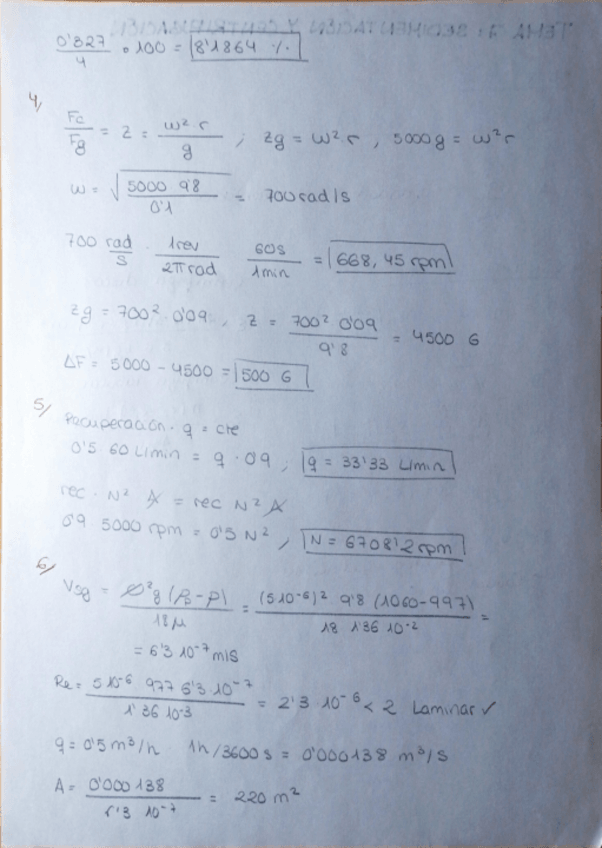 0'327/4 · 100 = 8'1864 %
4/
Fc/Fg = Z = w² r/g ; zg = w² r , 5000g = w² r
w = √(5000 9'8/0'1) = 700 rad/s
700 rad/s · 1rev/2π rad 60s/1min = 668,45 rpm
zg = 700² 0'09 , z = 700² 0'09/9'8 = 4500 G
ΔF = 5000 - 4500 = 500 G
5/
Recuperación · q = cte
0'5 60 L/min = q · 0'9 ; q = 33'33 L/min
rec · N² A = rec N² A
0'9 5000 rpm = 0'5 N² , N = 6708'2 rpm
6/
Vsg = Ø² g (ρs-ρ)/18μ = (5 10⁻⁶)² 9'8 (1060-997)/18 1'36 10⁻² =
= 6'3 10⁻⁷ m/s
Re = 5 10⁻⁶ 977 6'3 10⁻⁷/1'36 10⁻³ = 2'3 · 10⁻⁶ < 2 Laminar ✓
q = 0'5 m³/h 1h/3600 s = 0'000138 m³/s
A = 0'000138/6'3 10⁻⁷ = 220 m²